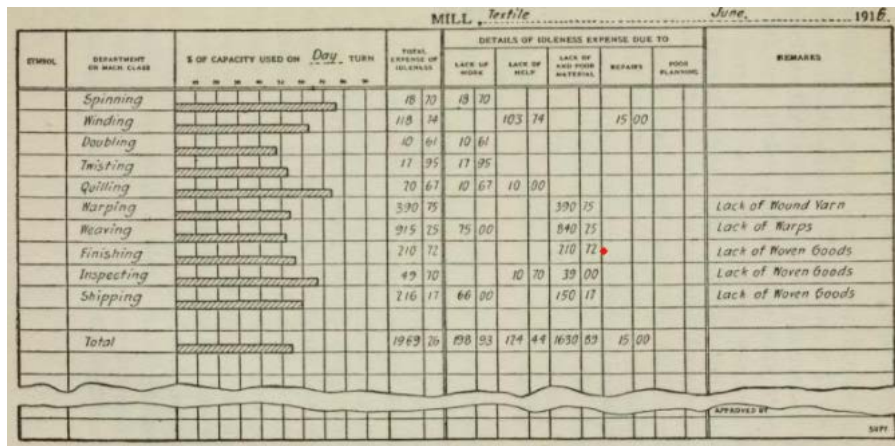 MILL, Textile June, 1916
SYMBOL DEPARTMENT OR MACH. CLASS % OF CAPACITY USED ON Day TURN TOTAL EXPENSE OF IDLENESS DETAILS OF IDLENESS EXPENSE DUE TO REMARKS
LACK OF WORK LACK OF HELP LACK OF AND POOR MATERIAL REPAIRS POOR PLANNING
Spinning 18 70 18 70
Winding 118 74 103 74 15 00
Doubling 10 61 10 61
Twisting 17 95 17 95
Quilling 20 67 10 67 10 00
Warping 390 75 390 75 Lack of Wound Yarn
Weaving 915 25 75 00 840 25 Lack of Warps
Finishing 210 72 210 72 Lack of Woven Goods
Inspecting 49 70 10 70 39 00 Lack of Woven Goods
Shipping 216 17 66 00 150 17 Lack of Woven Goods
Total 1969 26 198 93 124 44 1630 89 15 00
APPROVED BY
SUPT.